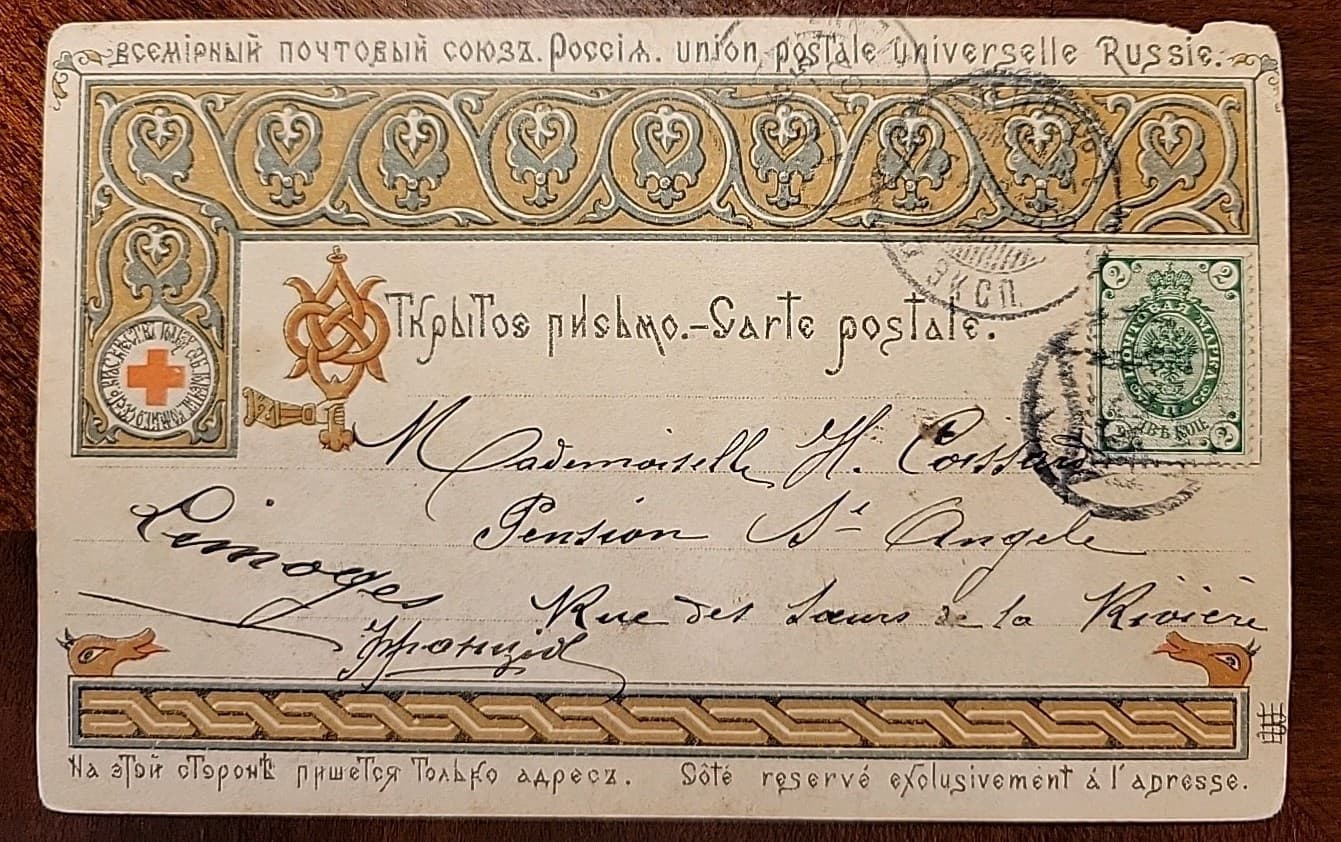 Всемірный почтовый союзъ. Россія. union postale universelle Russie.
Открытое письмо.–Carte postale.
2 2
ПОЧТОВАЯ МАРКА
ДВѢ КОП.
2 2
ЭКСП.
Mademoiselle H.
Pension St Angele
Limoges
Rue des Sœurs de la Rivière
Франція
На этой сторонѣ пишется только адресъ. Sôté reservé exclusivement á l'adresse.